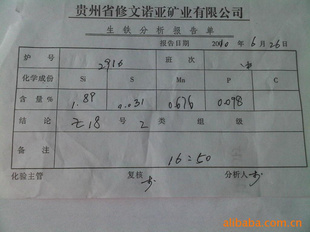 贵州省修文诺亚矿业有限公司
生铁分析报告单
报告日期 2010年6月26日
炉号 2916 班次
化学成份 Si S Mn P C
含量% 1.89 0.031 0.676 0.098
结论 Z18 号 2 类 组 级
备注 16=50
化验主管 复核 分析人
alibaba.com.cn